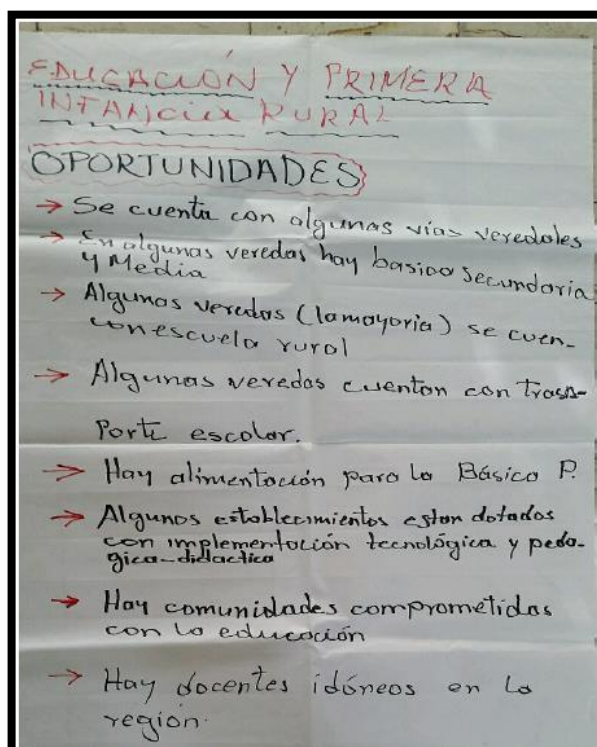 EDUCACION Y PRIMERA
INFANCIA RURAL
OPORTUNIDADES
→ Se cuenta con algunas vías veredales
→ En algunas veredas hay basica secundaria
y Media
→ Algunas veredas (la mayoria) se cuen-
con escuela rural
→ Algunas veredas cuentan con trasn-
Porte escolar.
→ Hay alimentación para la Básica P.
→ Algunos establecimientos estan dotados
con implementación tecnológica y peda-
gica-didactica
→ Hay comunidades comprometidas
con la educación
→ Hay docentes idóneos en la
region.